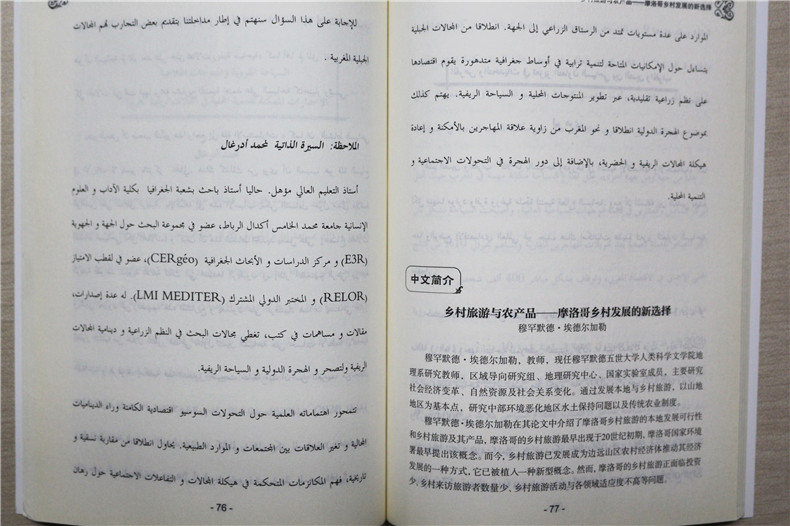 للإجابة على هذا السؤال سنهتم في إطار مداخلتنا بتقديم بعض التجارب تهم المجالات
الجبلية المغربية .
الملاحظة: السيرة الذاتية لمحمد أدرغال
أستاذ التعليم العالي مؤهل. حاليا أستاذ باحث بشعبة الجغرافيا بكلية الآداب و العلوم
الإنسانية جامعة محمد الخامس أكدال الرباط، عضو في مجموعة البحث حول الجهة و الجهوية
(E3R) و مركز الدراسات و الأبحاث الجغرافية (CERgéo)، عضو في لقطب الامتياز
(RELOR) و المختبر الدولي المشترك (LMI MEDITER). له عدة إصدارات،
مقالات و مساهمات في كتب، تغطي مجالات البحث في النظم الزراعية و دينامية المجالات
الريفية ولتصحر و الهجرة الدولية و السياحة الريفية.
تتمحور اهتماماته العلمية حول التحولات السوسيو اقتصادية الكامنة وراء الديناميات
المجالية و تغير العلاقات بين المجتمعات و الموارد الطبيعية. يحاول انطلاقا من مقاربة نسقية و
تاريخية، فهم الميكانزمات المتحكمة في هيكلة المجالات و التفاعلات الاجتماعية حول رهان
- 76 -
与农产品——摩洛哥乡村发展的新选择
الموارد على عدة مستويات تمتد من الرستاق الزراعي إلى الجهة. انطلاقا من المجالات الجبلية
يتساءل حول الإمكانيات المتاحة لتنمية ترابية في أوساط جغرافية متدهورة يقوم اقتصادها
على نظم زراعية تقليدية، عبر تطوير المنتوجات المحلية و السياحة الريفية. يهتم كذلك
بموضوع الهجرة الدولية انطلاقا و نحو المغرب من زاوية علاقة المهاجرين بالأمكنة و إعادة
هيكلة المجالات الريفية و الحضرية، بالإضافة إلى دور الهجرة في التحولات الاجتماعية و
التنمية المحلية.
中文简介
乡村旅游与农产品——摩洛哥乡村发展的新选择
穆罕默德·埃德尔加勒
穆罕默德·埃德尔加勒，教师，现任穆罕默德五世大学人类科学文学院地
理系研究教师、区域导向研究组、地理研究中心、国家实验室成员，主要研究
社会经济变革、自然资源及社会关系变化。通过发展本地与乡村旅游、以山地
地区为基本点，研究中部环境恶化地区水土保持问题以及传统农业制度。
穆罕默德·埃德尔加勒在其论文中介绍了摩洛哥乡村旅游的本地发展可行性
和乡村旅游及其产品，摩洛哥的乡村旅游最早出现于20世纪初期，摩洛哥国家环境
署最早提出该概念。而今，乡村旅游已发展成为边远山区农村经济体推动其经济
发展的一种方式，它已被植入一种新型概念。然而，摩洛哥的乡村旅游正面临投资
少、乡村来访旅游者数量少、乡村旅游活动与各领域适应度不高等问题。
- 77 -